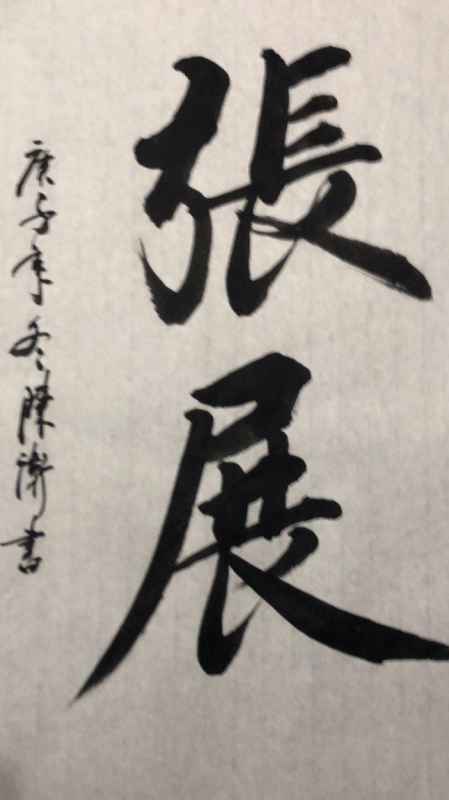 張展
庚子年冬陳書